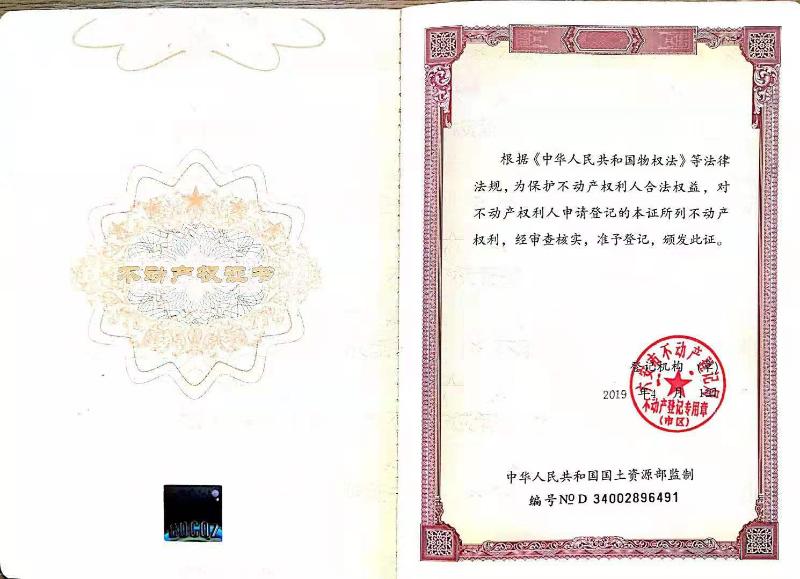 不动产权证书
根据《中华人民共和国物权法》等法律
法规，为保护不动产权利人合法权益，对
不动产权利人申请登记的本证所列不动产
权利，经审查核实，准予登记，颁发此证。
六安市不动产登记局
登记机构（章）
2019 年 4 月
不动产登记专用章
(市区)
中华人民共和国国土资源部监制
编号 NO D 34002896491